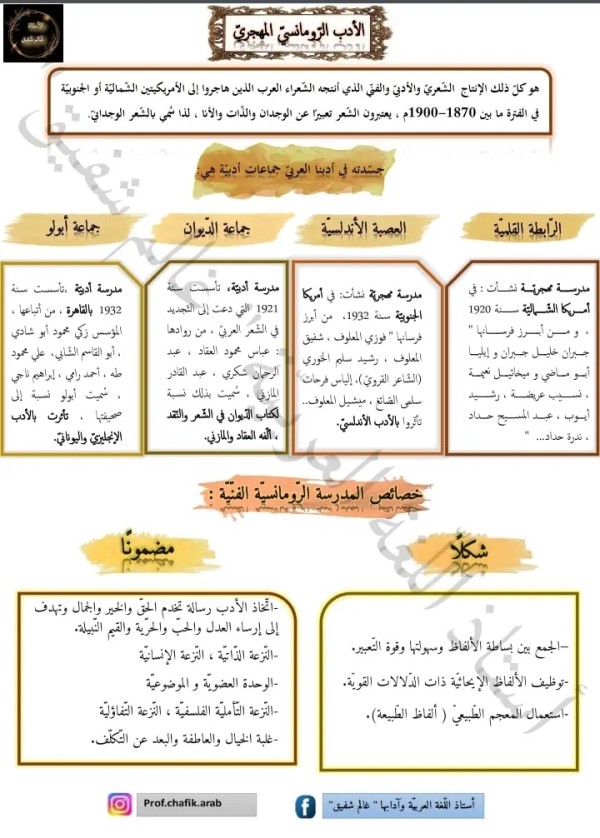 الأدب الرّومانسيّ المهجريّ
هو كلّ ذلك الإنتاج الشّعريّ والأدبيّ والفنّي الذي أنتجه الشّعراء العرب الذين هاجروا إلى الأمريكيتين الشّماليّة أو الجنوبيّة
في الفترة ما بين 1870–1900م ، يعتبرون الشّعر تعبيرًا عن الوجدان والذّات والأنا ، لذا سُمي بالشّعر الوجدانيّ.
جسّدته في أدبنا العربيّ جماعات أدبيّة هي:
الرّابطة القلميّة
مدرسـة مهجريّـة نشأت : في
أمريكا الشّـماليّة سنة 1920
، و مـن أبرز فرسـانها "
جبران خليل جبران و إيليا
أبو ماضي و ميخائيل نعيمة
، نسيب عريضة ، رشيد
أيوب ، عبد المسيح حداد
، ندرة حداد... "
العصبة الأندلسيّة
مدرسة مهجرية نشأت: في أمريكا
الجنوبيّة سنة 1932، من أبرز
فرسانها " فوزي المعلوف ، شفيق
المعلوف ، رشيد سليم الخوري
(الشّاعر القرويّ)، إلياس فرحات
سلمى الصّائغ ، ميشيل المعلوف..
تأثروا بالأدب الأندلسيّ.
جماعة الدّيوان
مدرسة أدبيّة، تأسّست سنة
1921 التي دعت إلى التّجديد
في الشّعر العربيّ ، من روادها
: عباس محمود العقاد ، عبد
الرحمان شكري ، عبد القادر
المازني ، سُميت بذلك نسبة
لكتاب الدّيوان في الشّعر والنّقد
، ألّفه العقاد والمازني.
جماعة أبولو
مدرسة أدبيّة ،تأسّست سنة
1932 بالقاهرة ، من أتباعها ،
المؤسس زكي محمود أبو شادي
، أبو القاسم الشّابي، علي محمود
طه ، أحمد رامي ، إبراهيم ناجي
سُميت أبولو نسبة إلى
صحيفتها ، تأثرت بالأدب
الإنجليزيّ واليونانيّ.
خصائص المدرسة الرّومانسيّة الفنّيّة :
شكلًا
–الجمع بين بساطة الألفاظ وسهولتها وقوة التّعبير.
-توظيف الألفاظ الإيحائيّة ذات الدّلالات القويّة.
-استعمال المعجم الطّبيعيّ ( ألفاظ الطّبيعة).
مضمونًا
-اتّخاذ الأدب رسالة تخدم الحقّ والخير والجمال وتهدف
إلى إرساء العدل والحبّ والحرّية والقيم النّبيلة.
-النّزعة الذّاتيّة ، النّزعة الإنسانيّة
-الوحدة العضويّة و الموضوعيّة
-النّزعة التّأمليّة الفلسفيّة ، النّزعة التّفاؤليّة
-غلبة الخيال والعاطفة والبعد عن التّكلّف.
أستاذ اللّغة العربيّة وآدابها " غالم شفيق"
Prof.chafik.arab
أستاذ اللغة العربية " غالم شفيق "